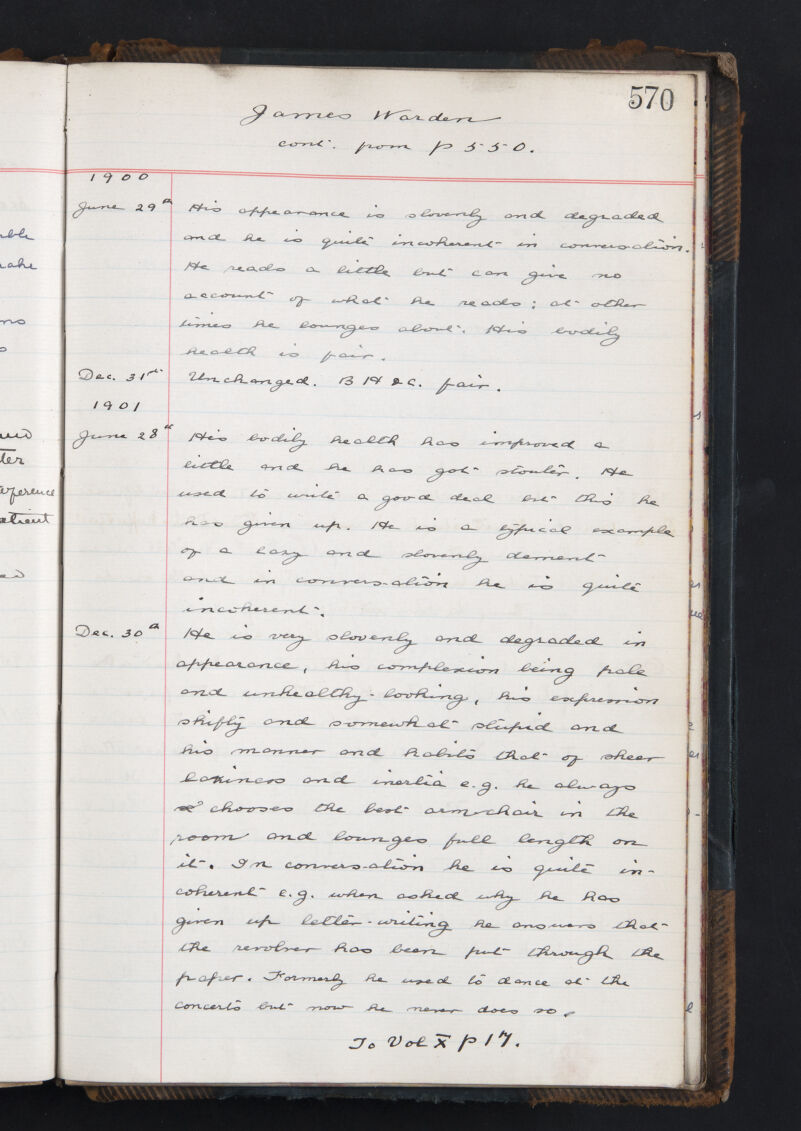 570
James Warden
cont. from p 550.
1900
June 29th His appearance is slovenly and degraded
and he is quite incoherent in conversation.
He reads a little but can give no
account of what he reads; at other
times he lounges about. His bodily
health is fair.
Dec. 31st Unchanged. B H & c. fair.
1901
June 28th His bodily health has improved a
little and he has got stouter. He
used to write a good deal but this he
has given up. He is a typical example
of a lazy and slovenly dement
and in conversation he is quite
incoherent.
Dec. 30th He is very slovenly and degraded in
appearance, his complexion being pale
and unhealthy-looking, his expression
shifty and somewhat stupid and
his manner and habits that of sheer
laziness and inertia e.g. he always
chooses the best armchair in the
room and lounges full length on
it. In conversation he is quite in-
coherent e.g. when asked why he has
given up letter-writing he answers that
the revolver has been put through the
paper. Formerly he used to dance at the
concerts but now he never does so.
To Vol X p 17.